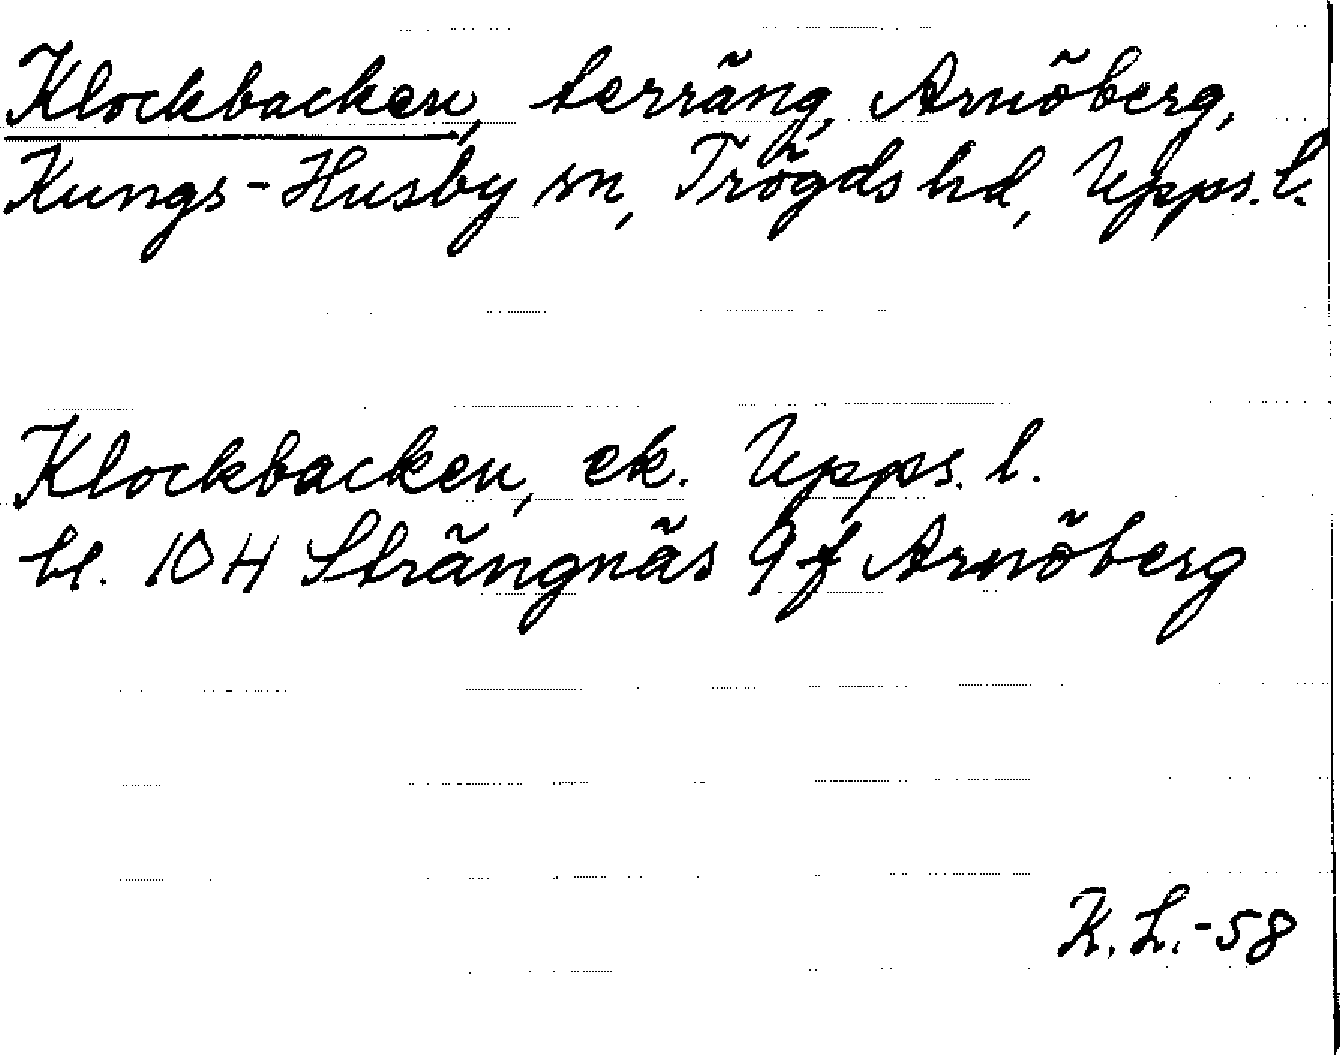 Klockbacken, terräng, Arnöberg,
Kungs-Husby sn, Trögds hd, Upps. l.
Klockbacken, ek. Upps. l.
bl. 10 H Strängnäs 9 f Arnöberg
K. L. -58